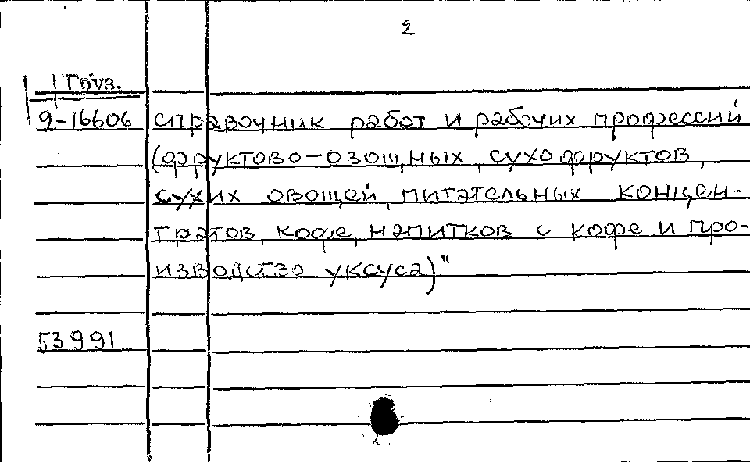 2
Груз.
9-16606 справочник работ и рабочих профессий
(фруктово-овощных, сухофруктов,
сухих овощей, питательных концен-
тратов, кофе, напитков с кофе и про-
изводство уксуса)"
53991